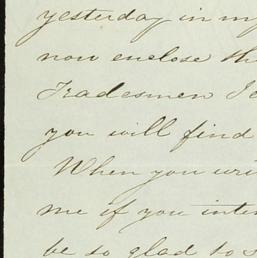 yesterday in my
now enclose th
Tradesmen I
you will find
When you wri
me if you inten
be so glad to s